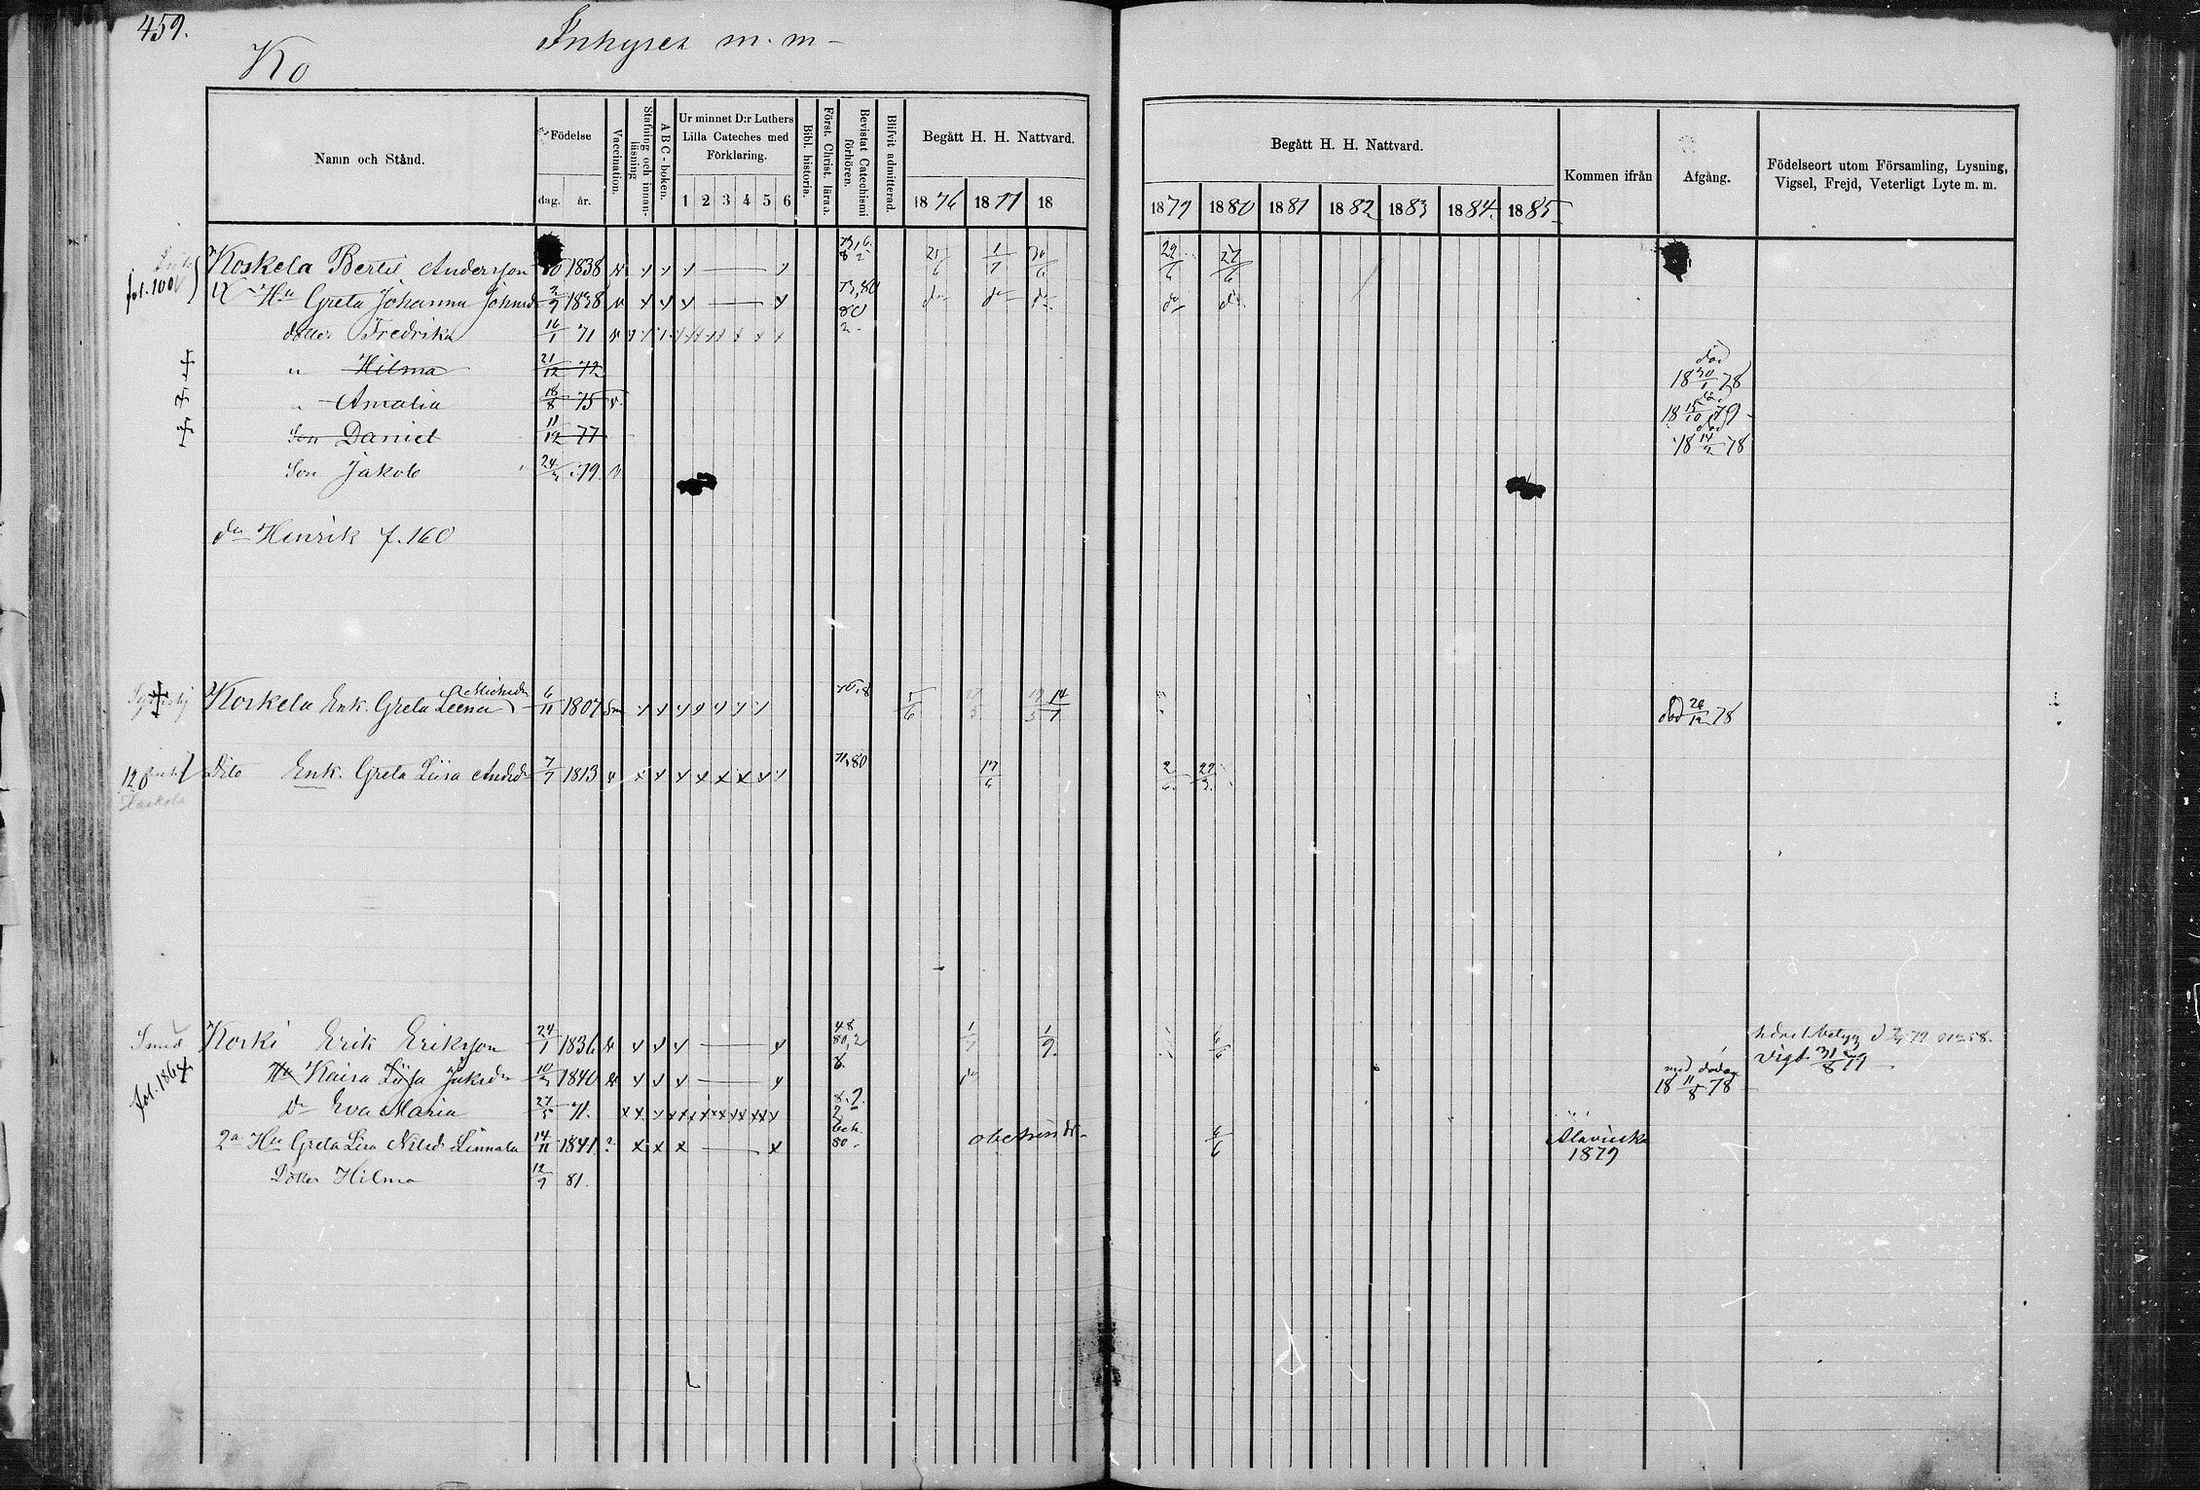 459.
Inhyses m. m.
Ko
Namn och Stånd.
Födelse
dag. år.
Vaccination.
Stafning och innanläsning
ABC-boken.
Ur minnet D:r Luthers Lilla Cateches med Förklaring.
1 2 3 4 5 6
Bibl. historia.
Först. Christ. lära.
Bevistat Catechismi förhören.
Blifvit admitterad.
Begått H. H. Nattvard.
1876 1877 18
Begått H. H. Nattvard.
1879 1880 1881 1882 1883 1884 1885
Kommen ifrån
Afgång.
Födelseort utom Församling, Lysning, Vigsel, Frejd, Veterligt Lyte m. m.
Koskela Bertil Andersson 1838
fol. 100
Hu Greta Johanna Johnsd 2/9 1838 73,80 do do do do do
dotter Fredrika 16/1 71
" Hilma 21/12 72 död 18 30/1 78
" Amalia 18/8 75 död 18 15/10 79
Son Daniel 11/12 77 död 18 14/2 78
Son Jakob 24/2 79
do Henrik f. 160
Koskela Enk. Greta Leena Michsdr 6/11 1807 död 26/12 78
Dito Enk. Greta Liisa Andsdr 7/7 1813 71,80 17/6 2/6 29/3
Smed Korki Erik Eriksson 24/1 1836 1/7 1/9 6/6 vigt 31/8 79
fol. 186
Hu Kaisa Liisa Jaksdr 10/2 1840 do 18 11/8 78
dr Eva Maria 27/5 71.
2a Hu Greta Lisa Nilsd Linnala 14/11 1841 ? 80 obehindr. 6/6 Alavieska 1879
Dotter Hilma 12/9 81.